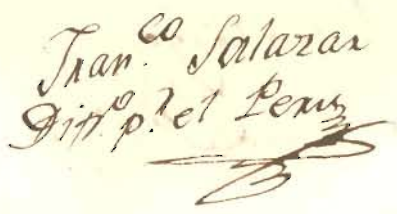 Fran.co Salazar
Dip.o p.r el Peru